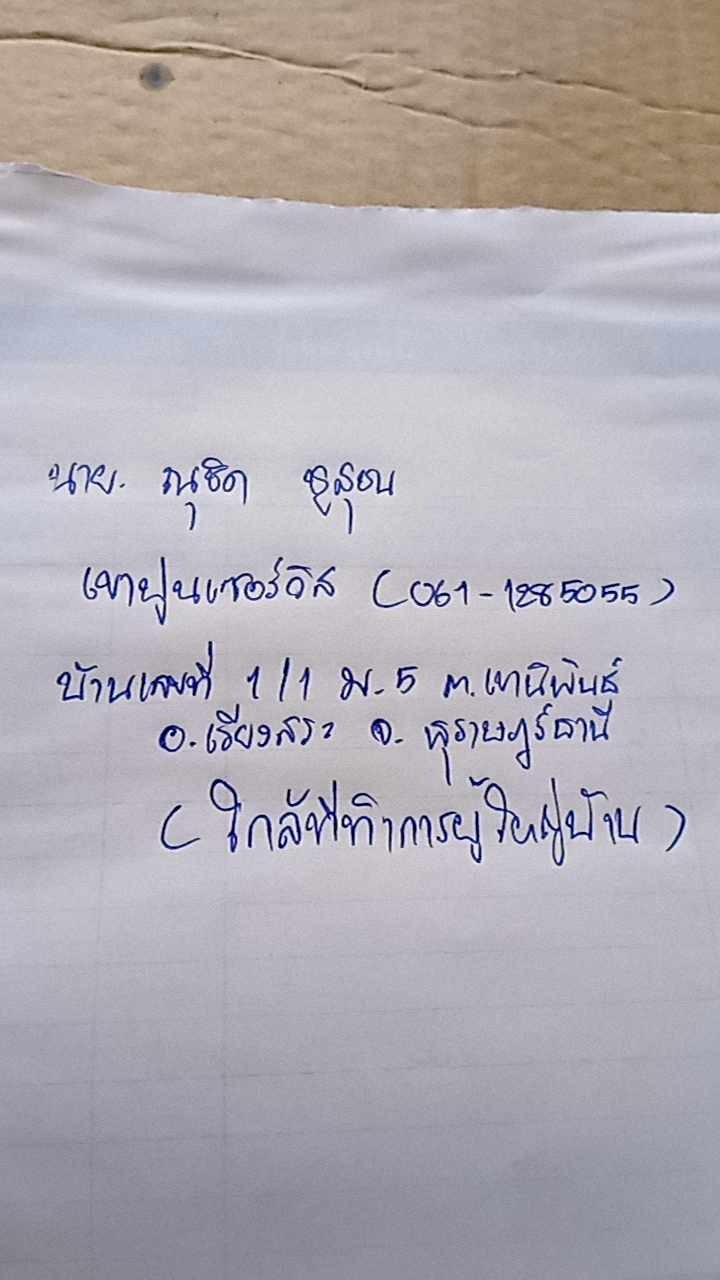 นาย. ณุชิต ชูสุชน
เขาปูนเซอร์วิส (061-1285055)
บ้านเลขที่ 1/1 ม.5 ต.เขานิพันธ์
อ.เวียงสระ จ. สุราษฎร์ธานี
(ใกล้ที่ทำการผู้ใหญ่บ้าน)